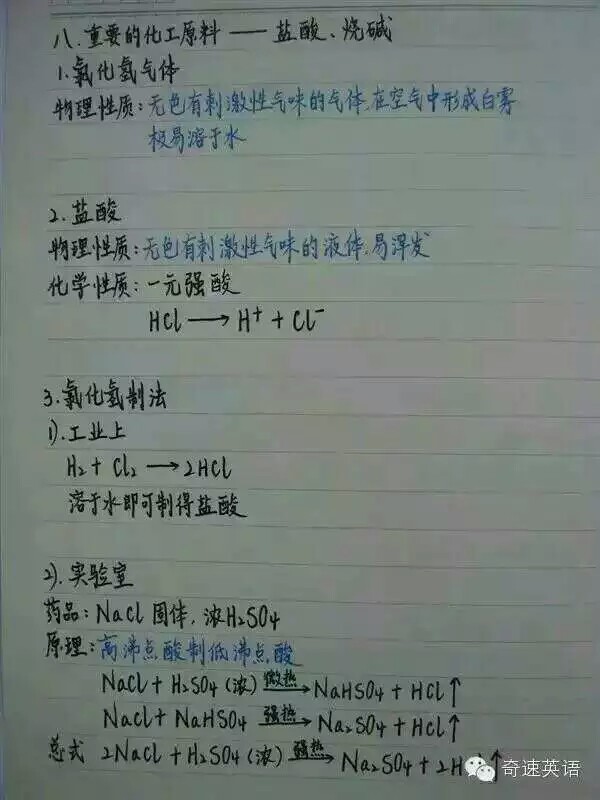 八.重要的化工原料 —— 盐酸、烧碱
1.氯化氢气体
物理性质:无色有刺激性气味的气体,在空气中形成白雾
极易溶于水
2.盐酸
物理性质:无色有刺激性气味的液体,易挥发
化学性质:一元强酸
HCl → H⁺ + Cl⁻
3.氯化氢制法
1).工业上
H₂ + Cl₂ → 2HCl
溶于水即可制得盐酸
2).实验室
药品:NaCl 固体,浓H₂SO₄
原理:高沸点酸制低沸点酸
NaCl + H₂SO₄(浓) 微热→ NaHSO₄ + HCl↑
NaCl + NaHSO₄ 强热→ Na₂SO₄ + HCl↑
总式 2NaCl + H₂SO₄(浓) 强热→ Na₂SO₄ + 2H ↑
奇速英语